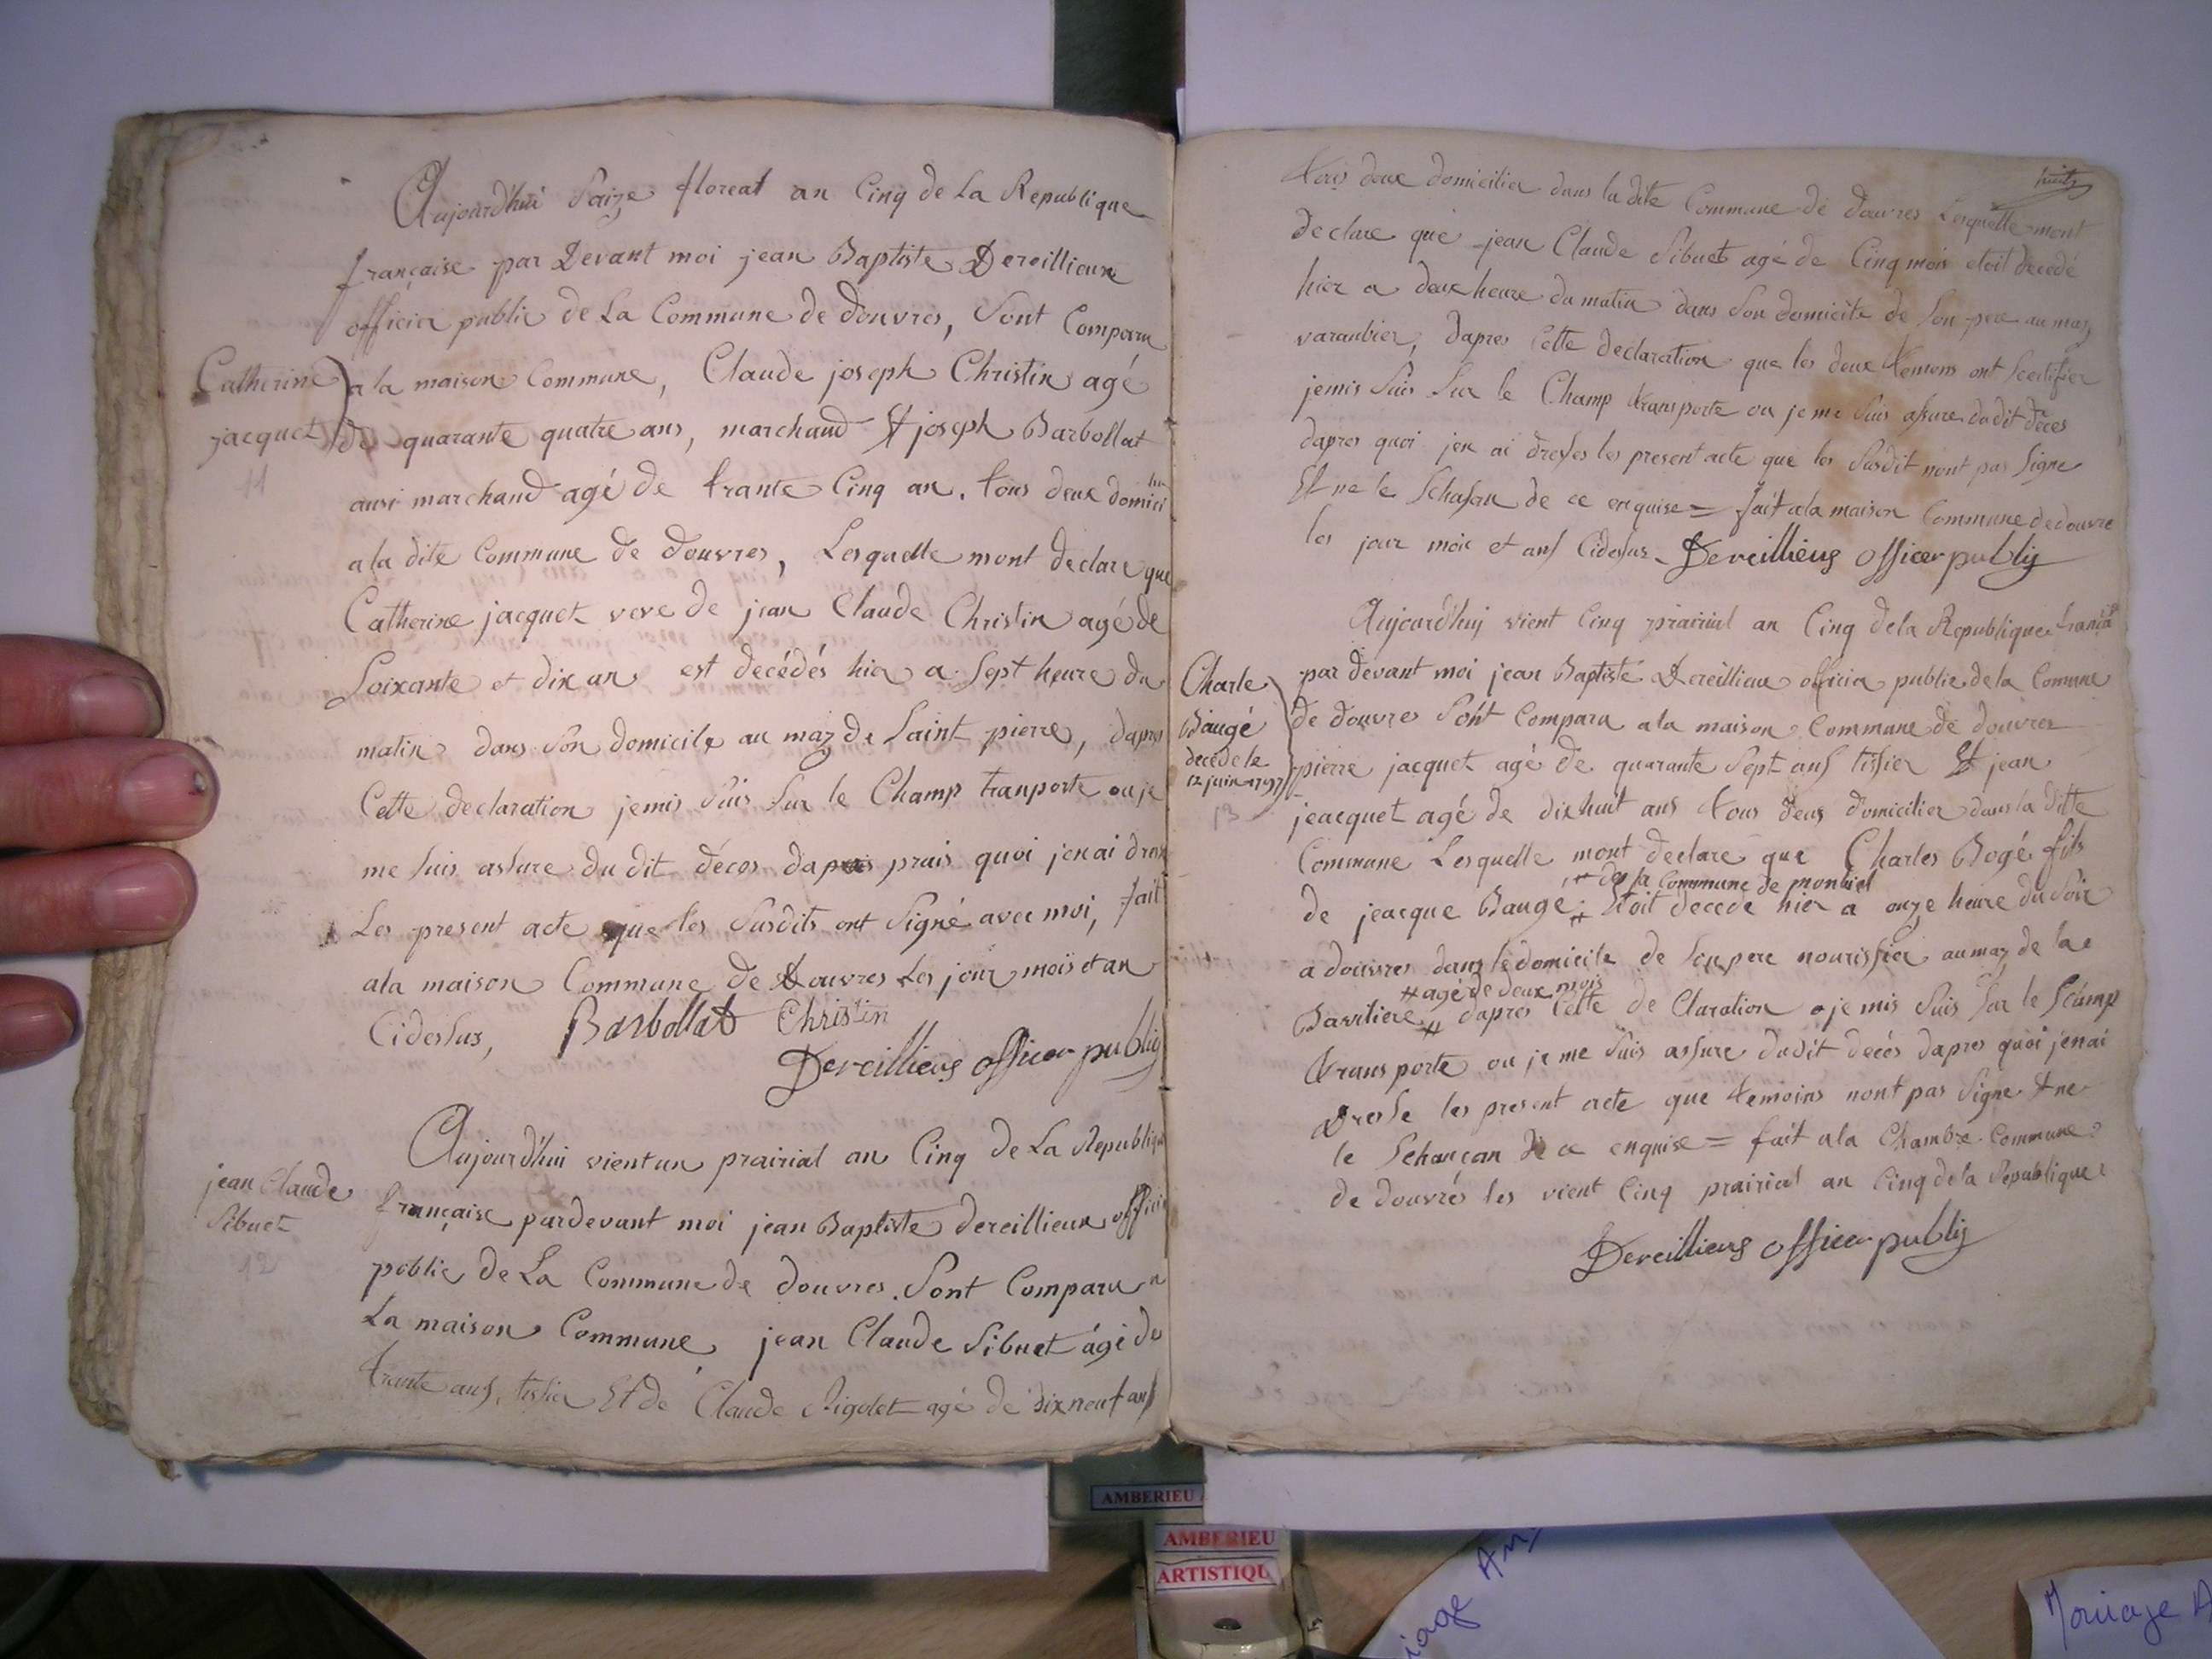 Aujourd'hui Saize floreal an Cinq de La Republique
française par Devant moi jean Baptiste Dereillieux
officier public de La Commune de douvres, Sont Comparu
Catherine
jacquet
11
a la maison Commune, Claude joseph Christin agé
de quarante quatre ans, marchand Et joseph Barbollat
ausi marchand agé de trante Cinq an. tous deux domici
lier
a la dite Commune de douvres, Lesquelle mont declare que
Catherine jacquet veve de jean Claude Christin agé de
Soixante et dix an est decédés hier a Sept heure du
matin dans Son domicile au maz de Saint pierre, dapres
Cette declaration jemis Suis Sur le Champ tranporte ou je
me Suis assure du dit déces dapres prais quoi jen ai dresse
Les present acte que les Susdits ont Signé avec moi, fait
a la maison Commune de douvres Les jour mois et an
Cidessus, Barbollat Christin
Dereillieus officer publiq
jean Claude
Sibuet
12
Aujourd'hui vient un prairial an Cinq de La Republique
française pardevant moi jean Baptiste dereillieux officier
poblic de La Commune de douvres. Sont Comparu a
La maison Commune, jean Claude Sibuet agé de
trante ans, tissier Et de Claude Rigolet agé de dix neuf ans
huit
tous deux domicilier dans la dite Commune de douvres Lesquelle mont
declare que jean Claude Sibuet agé de Cinq mois etoit decedé
hier a deux heure du matin dans Son domicile de Son pere au maz
varambier, dapres Cette declaration que les deux temoins ont Scertifier
jemis Suis Sur le Champ transporte ou je me Suis assure dudit déces
dapres quoi jen ai dresses les present acte que les Susdit nont pas Signe
Et ne le de ce enquise = fait a la maison Commune de douvre
les jour mois et ans Cidessus. Dereillieus officer publiq
Charle
Baugé
decede le
12 juin 1797
13
Aujourd'huy vient Cinq prairial an Cinq de la Republique francais
par devant moi jean Baptiste Dereillieux officier public de la Comune
de douvres Sont Comparu a la maison Commune de douvres
pierre jacquet agé de quarante Sept ans tissier Et jean
jeacquet agé de dix huit ans tous deux domicilier dans la ditte
Commune Lesquelle mont declare que Charles Bogé fils
# de la Commune de montuel
de jeacque Baugé, # Etoit decede hier a onze heure du Soir
a douvres dans le domicile de Son pere nourissier au maz de la
# agé de deux mois
# dapres Cette de Claration je mis Suis Sur le Scamp
transporte ou je me Suis assure dudit decés dapres quoi jen ai
dresse les present acte que temoins nont pas Signe Et ne
le de ce enquise = fait a la Chambre Commune
de douvrés les vient Cinq prairial an Cinq de la Republique
Dereillieus officer publiq
AMBERIEU
AMBERIEU
ARTISTIQU